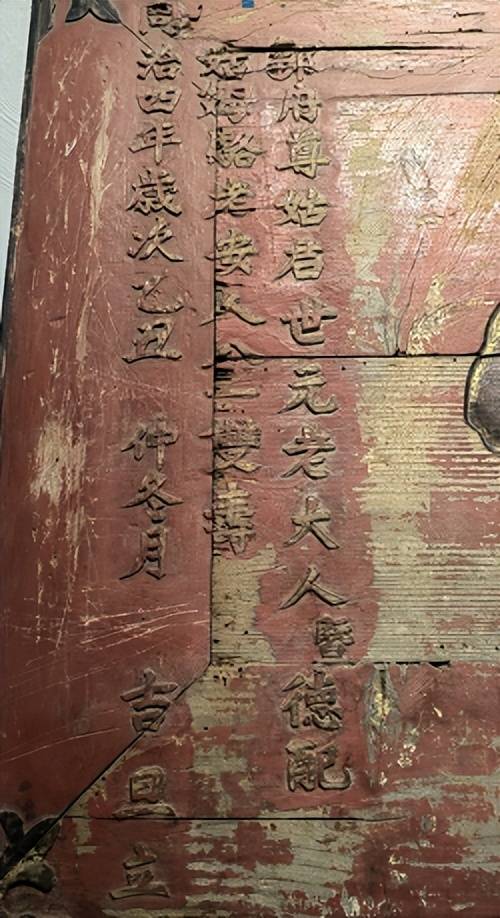 府尊姑君世元老大人暨德配
姑姆駱老安人雙壽
同治四年歲次乙丑 仲冬月 吉旦立